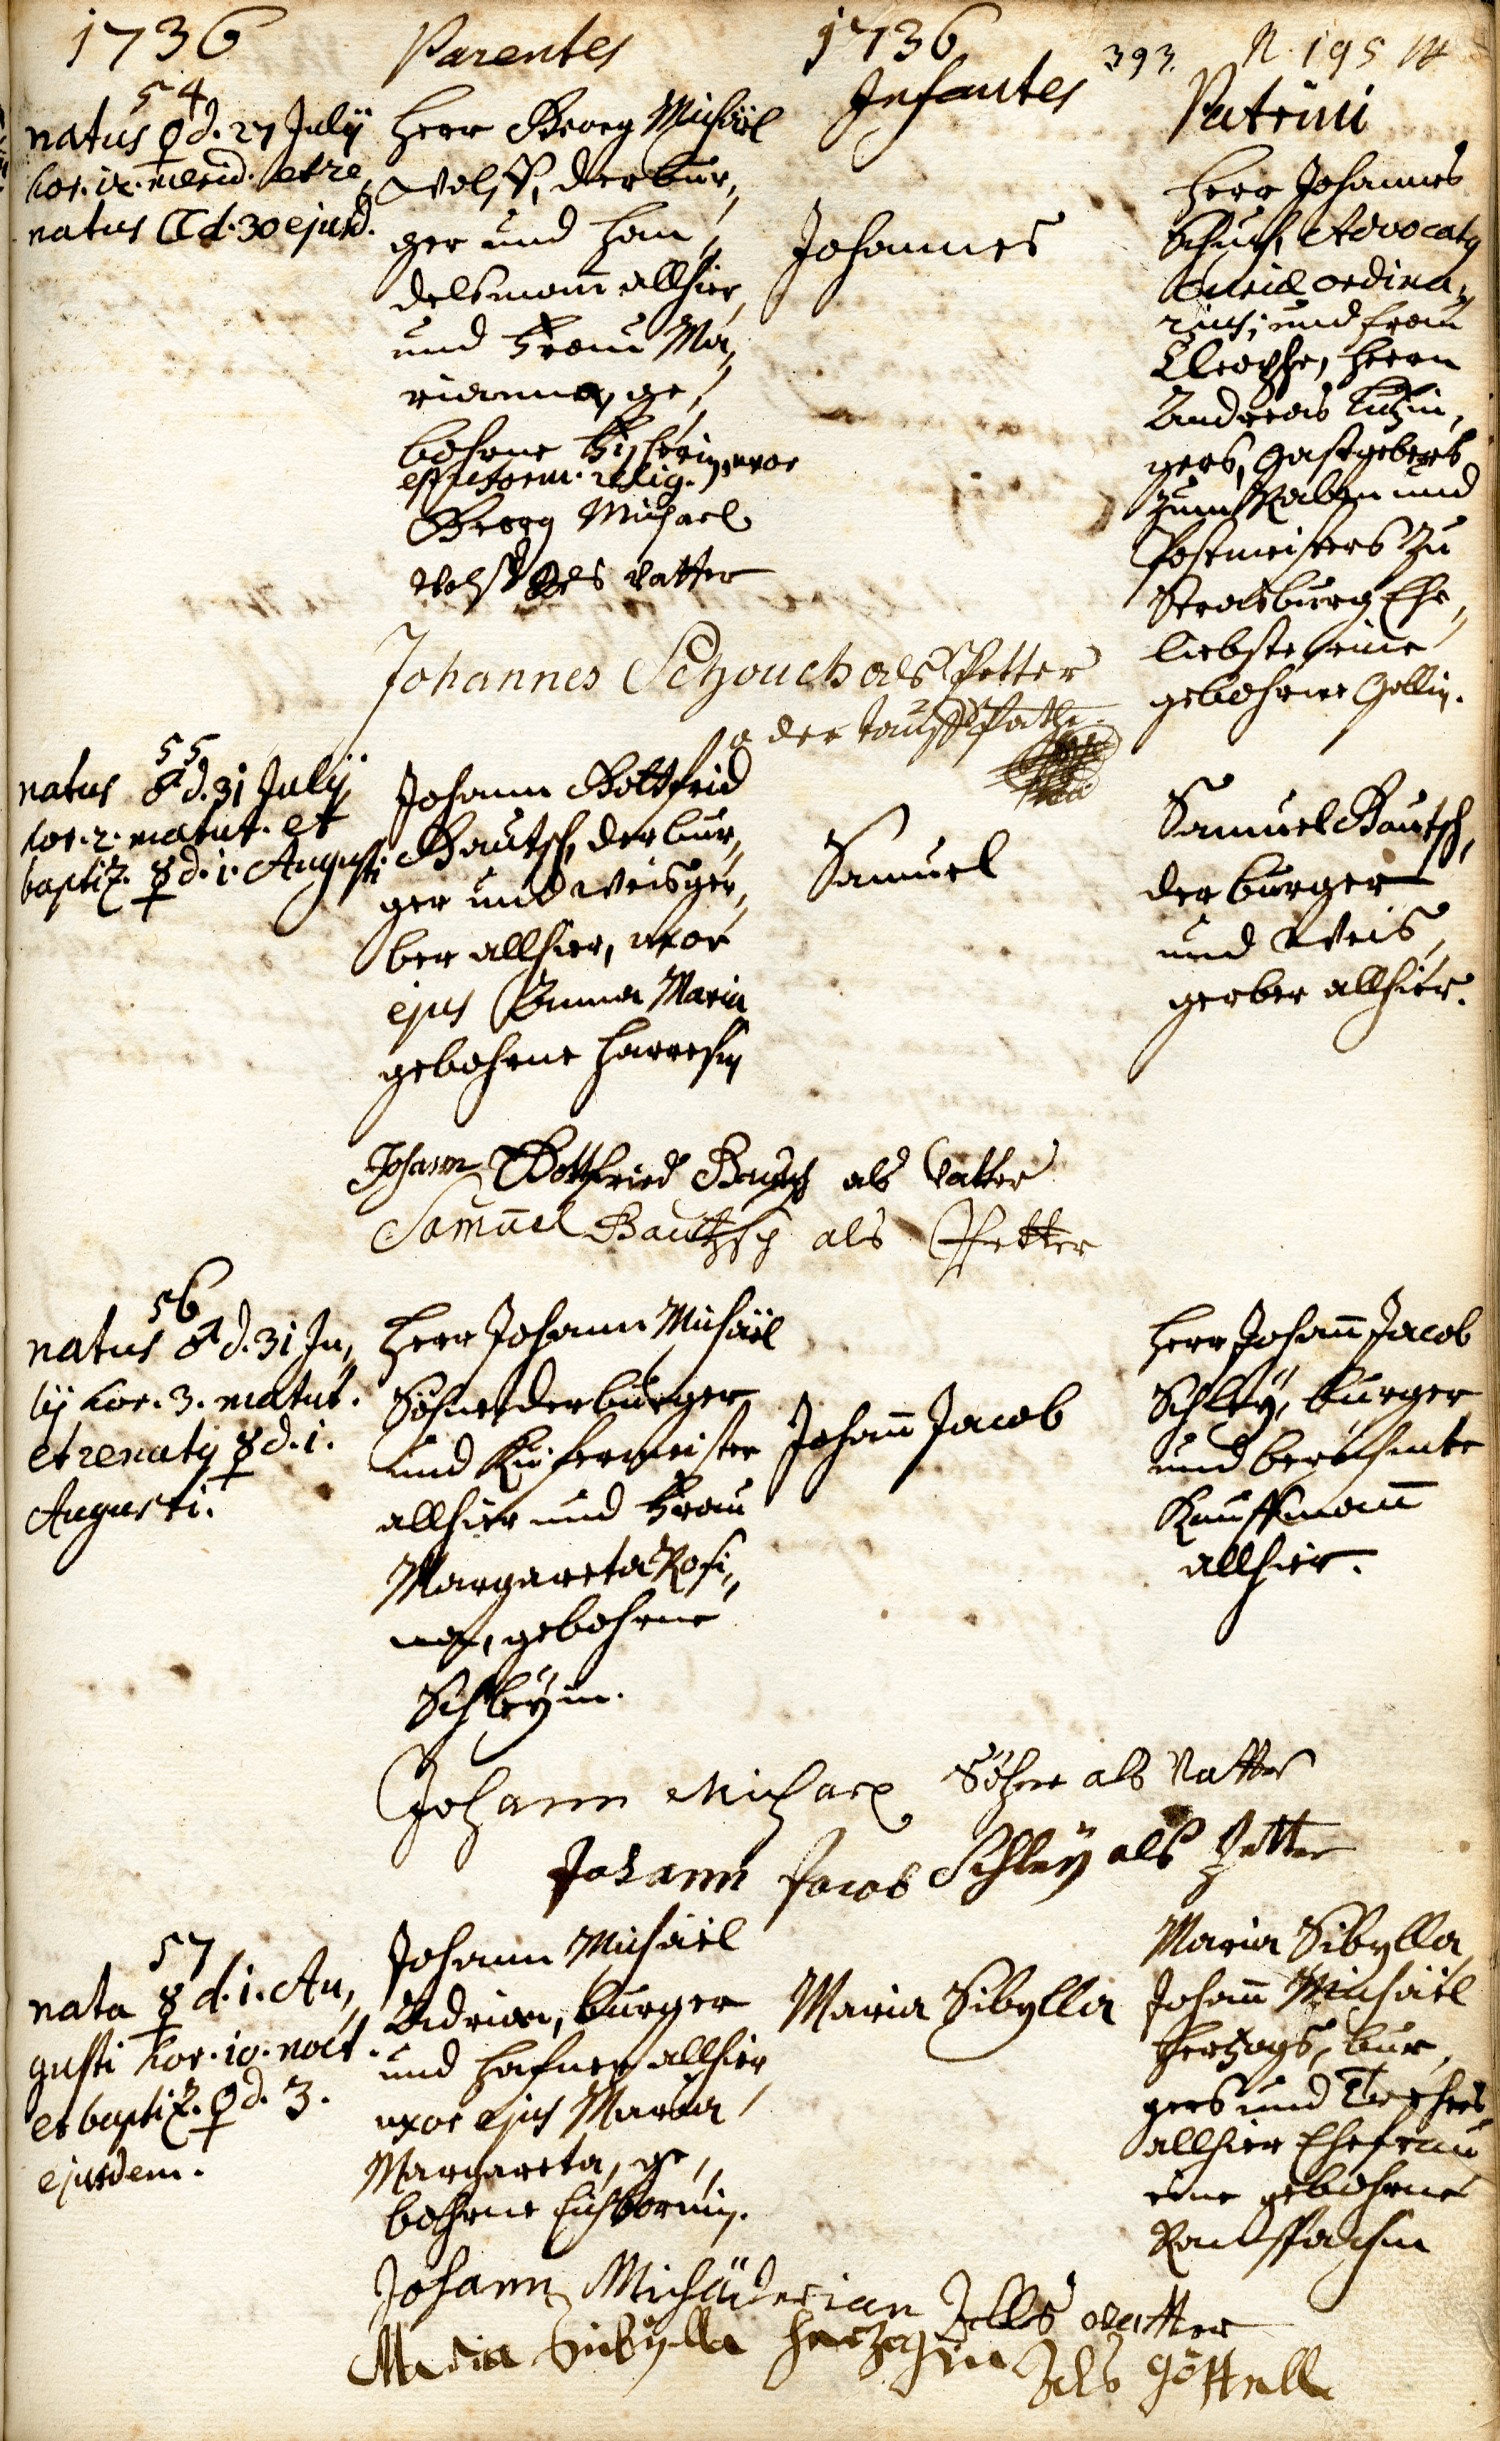 1736 Parentes 1736 393. N. 195
Infantes Patrini
54
natus ♀ d. 27 Julÿ
hor. 12. merid. et re,
natus ☾ d. 30 ejusd.
Herr Georg Michäel
Wolff, der bur,
ger und Han,
delsmañ allhier,
und Frau Ma,
rianna, ge,
bohrne Fischerin, uxor
est reform. relig.
Georg Michael
Wolff Als Vatter
Johannes
Herr Johannes
Schuch, Advocatq
ordina,
rius; und Frau
Cleophe, Herrn
Andreas
gers, Gastgebers
zum Raben und
Postmeisters zu
Strasburg Ehe,
liebste, eine
gebohrne Gollin.
Johannes Schouch als Petter
oder Tauff Pathe.
55
natus ♂ d. 31 Julÿ
hor. 2. matut. et
baptiz. ☿ d. 1. Augusti
Johann Gottfrid
Bautsch, der bur,
ger und Weisger,
ber allhier, uxor
ejus Anna Maria
gebohrne
Samuel
Samuel Bautsch,
der burger
und Weis,
gerber allhier.
Johann Gottfried Bautsch als Vatter
Samuel Bautzsch als Petter
56
natus ♂ d. 31 Ju,
lÿ hor. 3. matut.
et renatq ☿ d. 1.
Augusti.
Herr Johann Michäel
Söhner der burger
und Kiefermeister
allhier und Frau
Margareta Rosi,
na, gebohrne
Schleÿin.
Johañ Jacob
Herr Johañ Jacob
Schleÿ, burger
und berühmte
Kauffmañ
allhier.
Johann Michael Söhner als Vatter
Johann Jacob Schleÿ als Petter
57
nata ☿ d. 1. Au,
gusti hor. 10. noct.
et baptiz. ♀ d. 3.
ejusdem.
Johann Michäel
Adrian, burger
und Hafner allhier
uxor ejus Maria
Margareta, ge,
bohrne Eichhornin.
Maria Sibylla
Maria Sibylla,
Johañ Michäel
Hertzogs, bur,
gers und
allhier Ehefrau
eine gebohrne
Johann Michäl Aderian Alls Vatter
Maria Sibylla Hertzogin Als Göttell